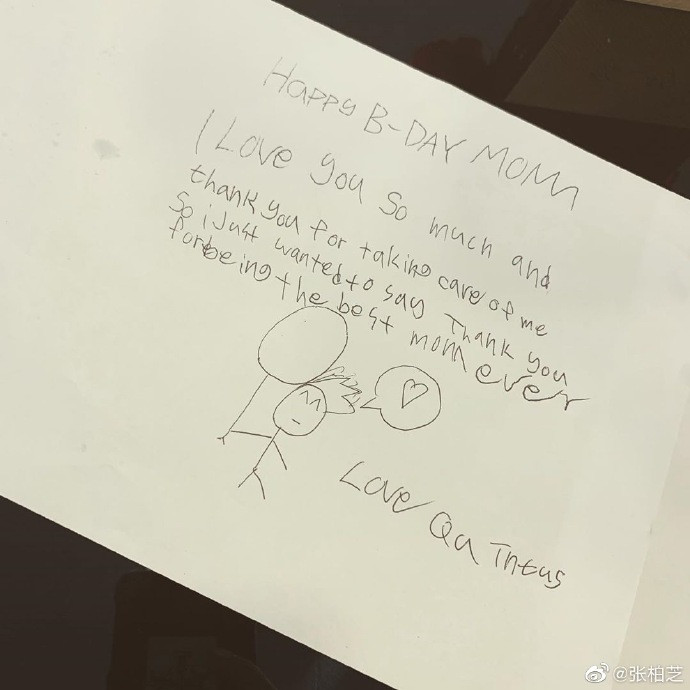 HAPPY B-DAY MOM
I Love you so much and
thank you for taking care of me
So i Just wanted to say Thank you
for being the best mom ever
Love Quintus
@张柏芝